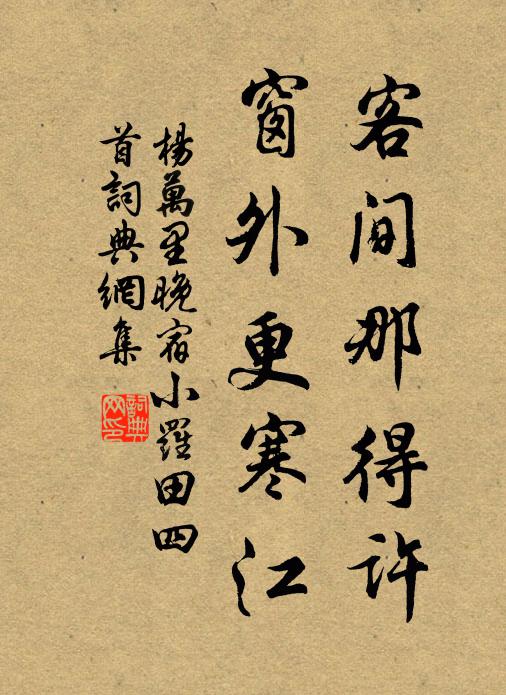 客間那得許
窗外更寒江
楊萬里晚宿小羅田四
首詞典網集
詞典
网印